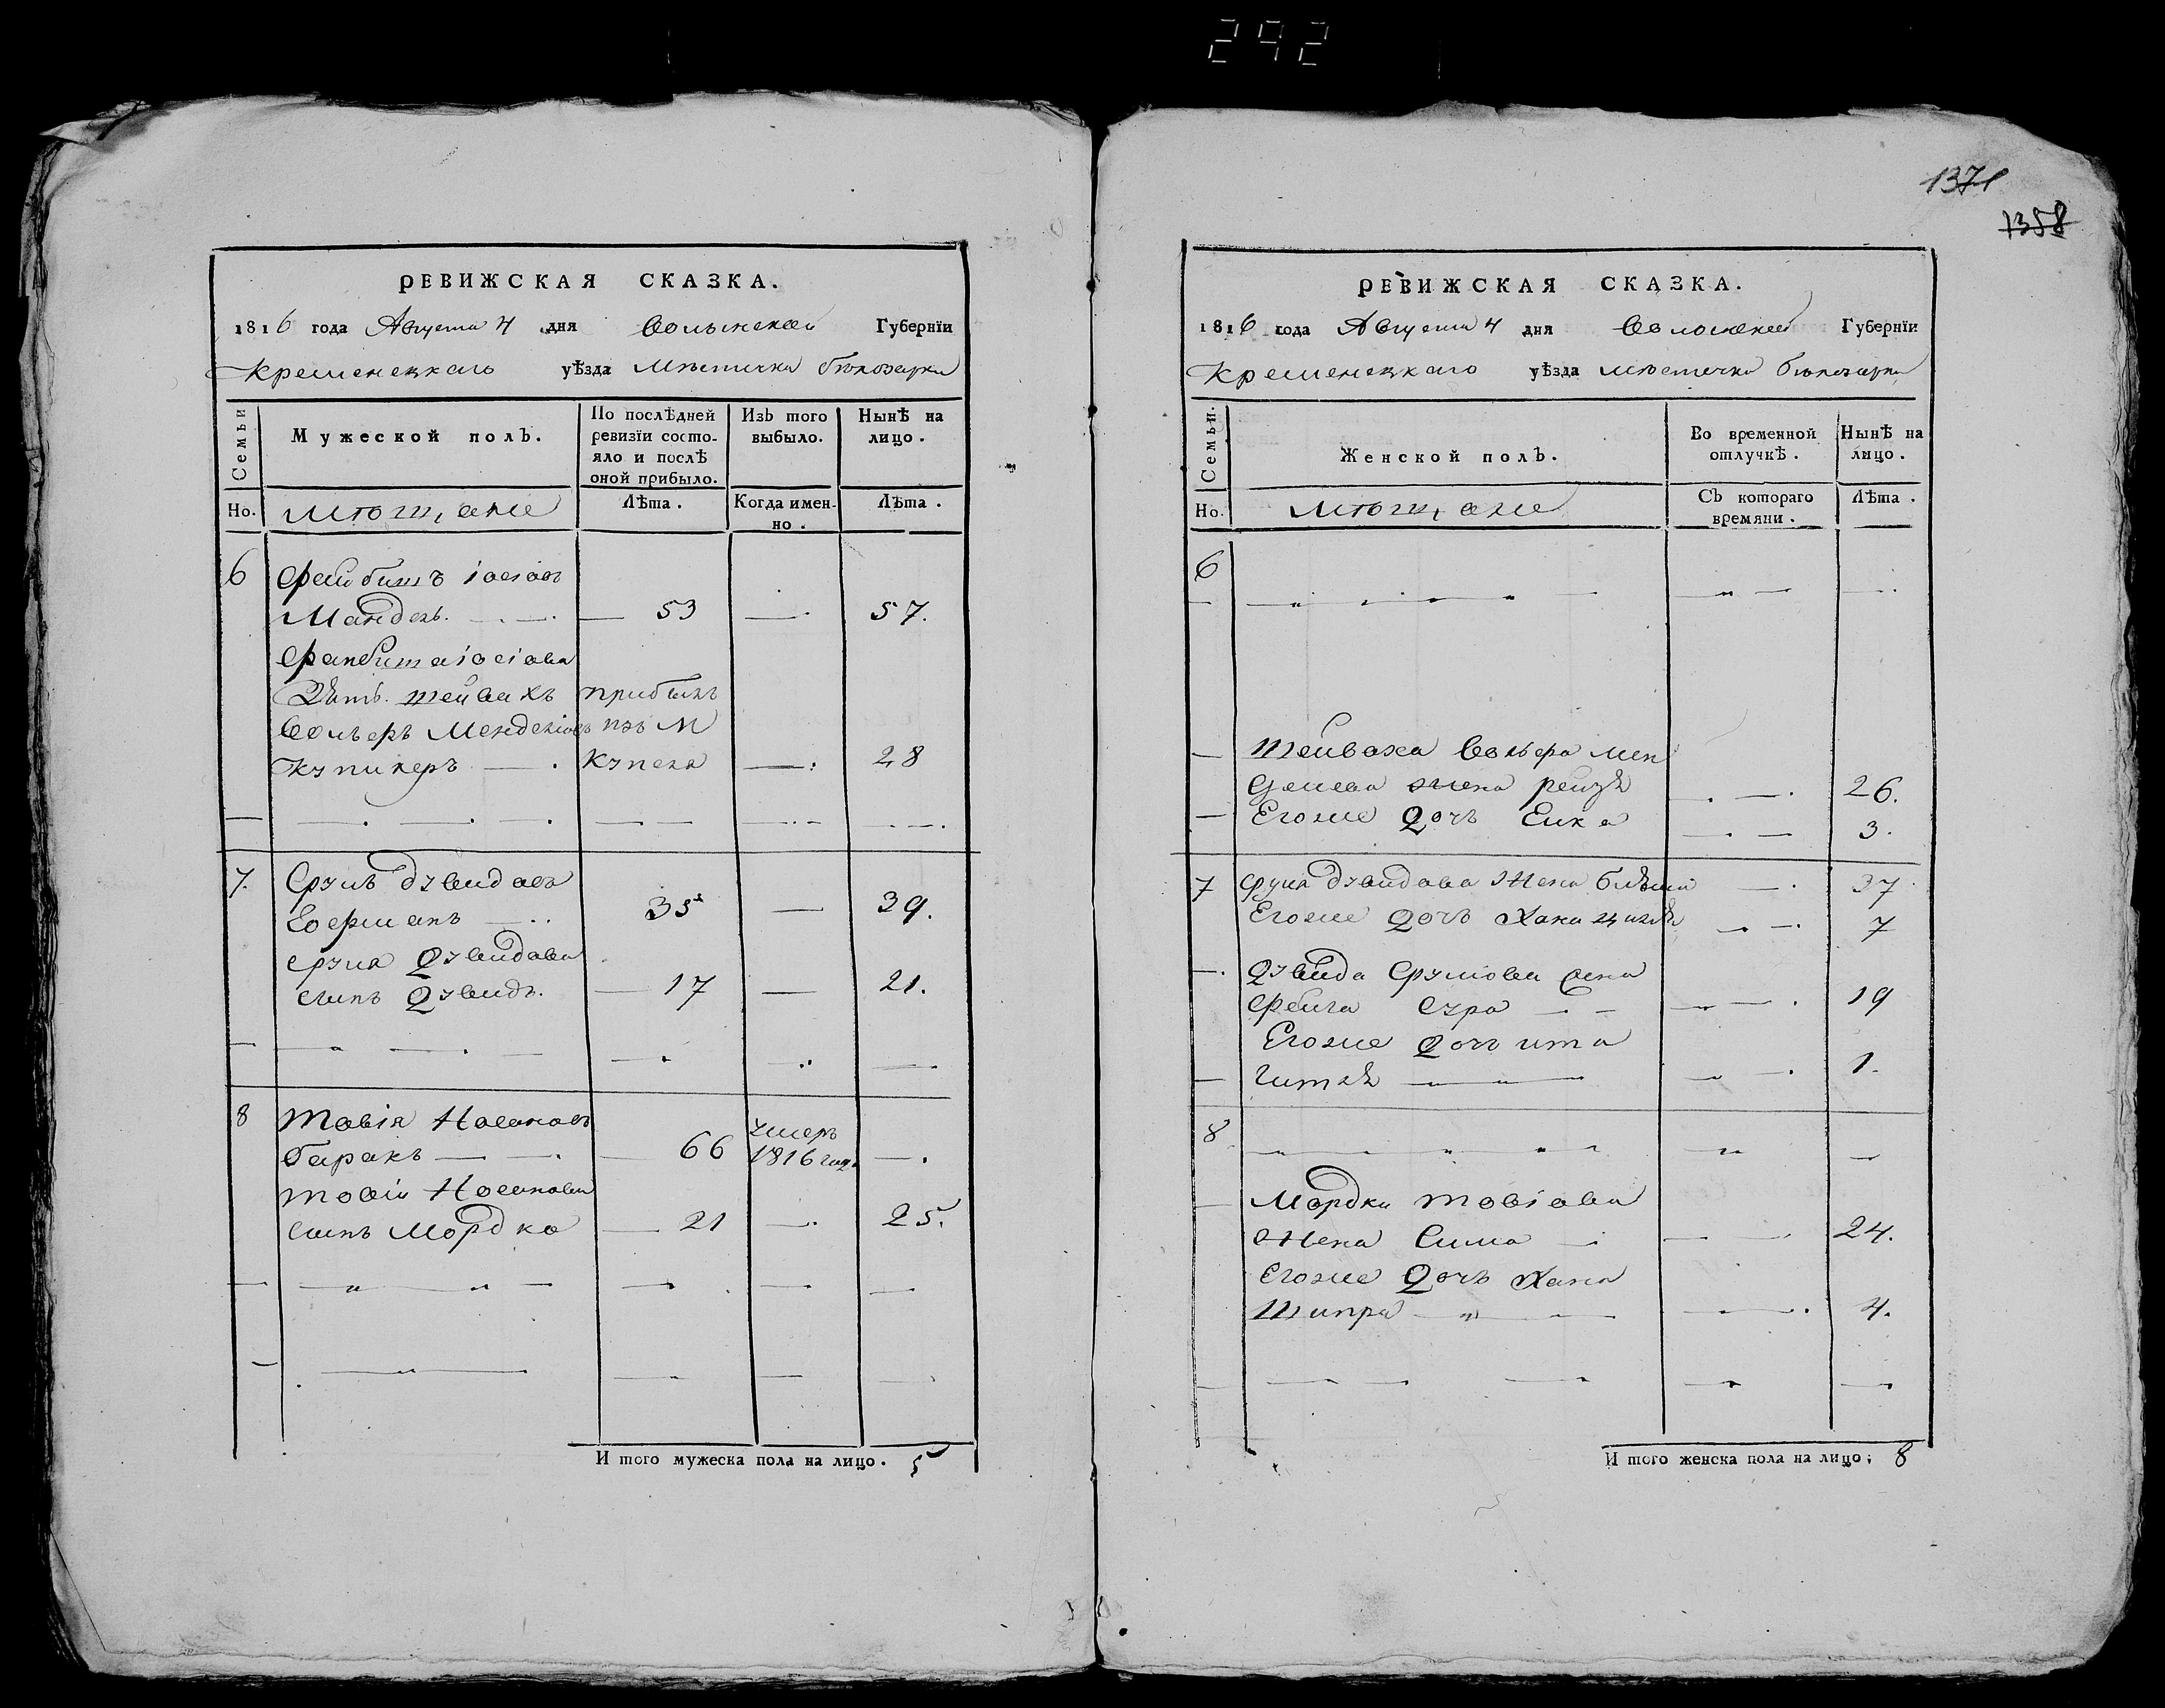 292
1371
1358
РЕВИЖСКАЯ СКАЗКА.
1816 года Августа 4 дня Волынской Губернїи
Кременецкаго уѣзда Мѣстечка Бѣлозорки
Семьи
Мужеской полъ.
По послѣдней ревизїи состояло и послѣ оной прибыло.
Изъ того выбыло.
Нынѣ на лицо.
Но.
Мѣщане
Лѣта.
Когда именно.
Лѣта.
6 Файбишъ Іосіовъ
Мандель. — 53 — 57.
Файбиша Іосіова
Зять Шейвахъ прибылъ
Вольфъ Менделіовъ изъ М
Купинеръ — Купеля — 28
7. Сруль Дувидовъ
Гофманъ — 35 — 39.
Сруля Дувидова
сынъ Дувидъ. — 17 — 21.
8 Товія Носоновъ
Баракъ — 66 умеръ 1816 года —.
Товіи Носонова
сынъ Мордко — 21 — 25.
И того мужеска пола на лицо. 5
РЕВИЖСКАЯ СКАЗКА.
1816 года Августа 4 дня Волынской Губернїи
Кременецкаго уѣзда мѣстечка Бѣлозорки
Семьи.
Женской полъ.
Во временной отлучкѣ.
Нынѣ на лицо.
Но.
Мѣщане
Съ котораго времяни.
Лѣта.
6
— Шейваха Вольфа Мен
делева жена Рейзя — 26.
— Егоже дочь Сика — 3.
7 Сруля Дувидова жена — 37
Егоже дочь Хана — 7
— Дувида Срулова жена
Фейга Сура — 19
Егоже дочь Ита
— Гитля — 1.
8
— Мордки Товіова
жена Сима — 24.
Егоже дочь Хана
Шипра — 4.
И того женска пола на лицо; 8